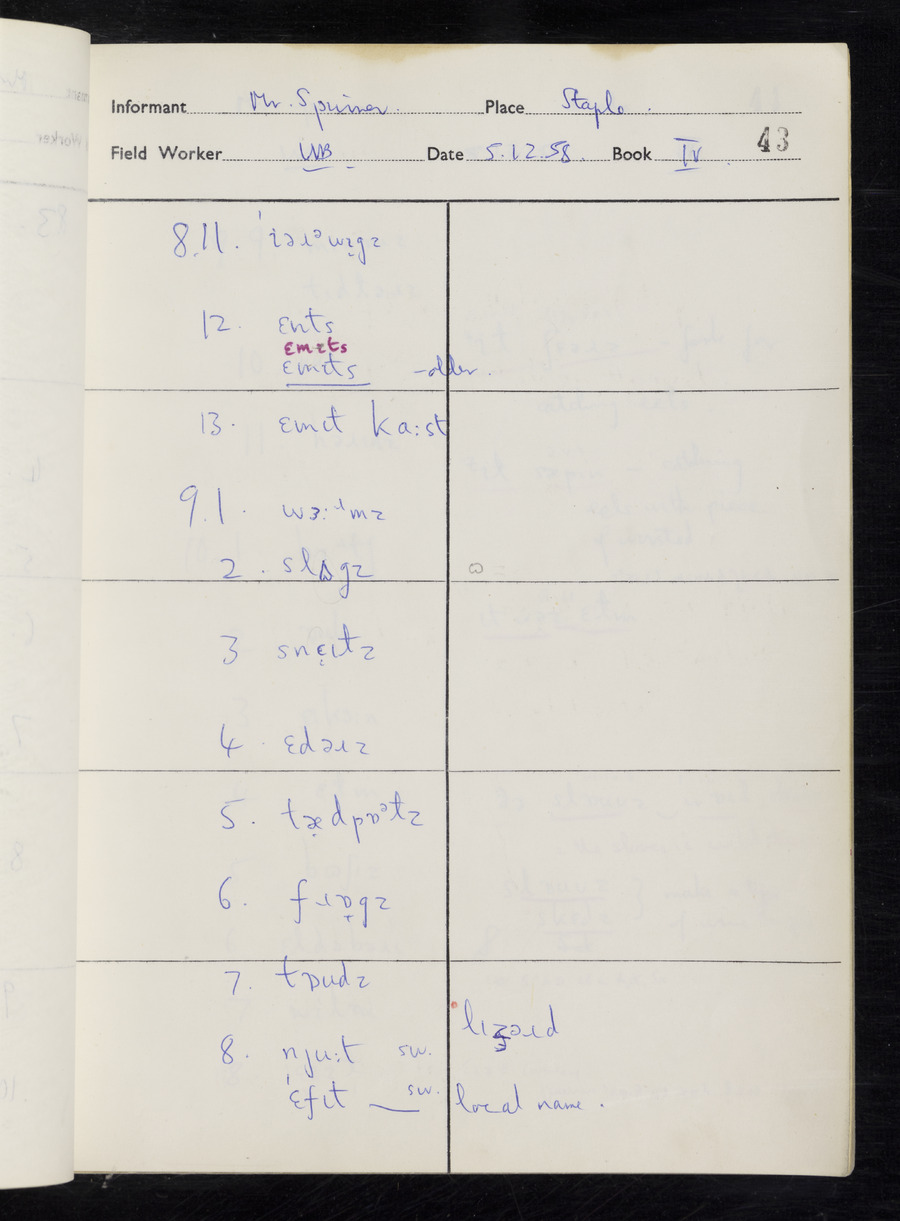 Informant Mr. Spinner. Place Staple.
Field Worker WB Date 5.12.58. Book IV 43
8.11. ˈiəɹᵊwɪ̣gz
12. ɛnts
ɛmɪts
ɛmɪts -older.
13. ɛmɪt ka:st
9.1. wɜ:ɹmz
2. slʌgz ω
3 snɛ̣ɪtz
4. ɛdəɹz
5. tæ̣dpɒᵊtz
6. fɹɒ̟gz
7. tɒudz
lɪzəɹd
8. nju:t sw.
ˈɛfɪt sw. local name.